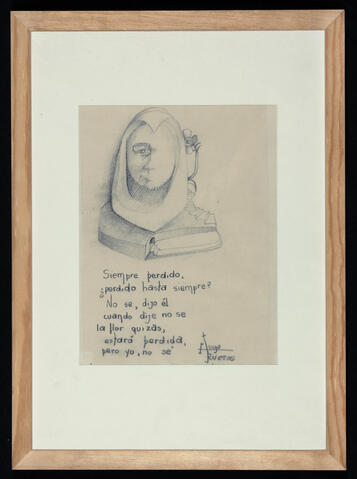 Siempre perdido,
¿perdido hasta siempre?
No se, dijo él
cuando dije no se
la flor quizás,
estará perdida,
pero yo, no sé